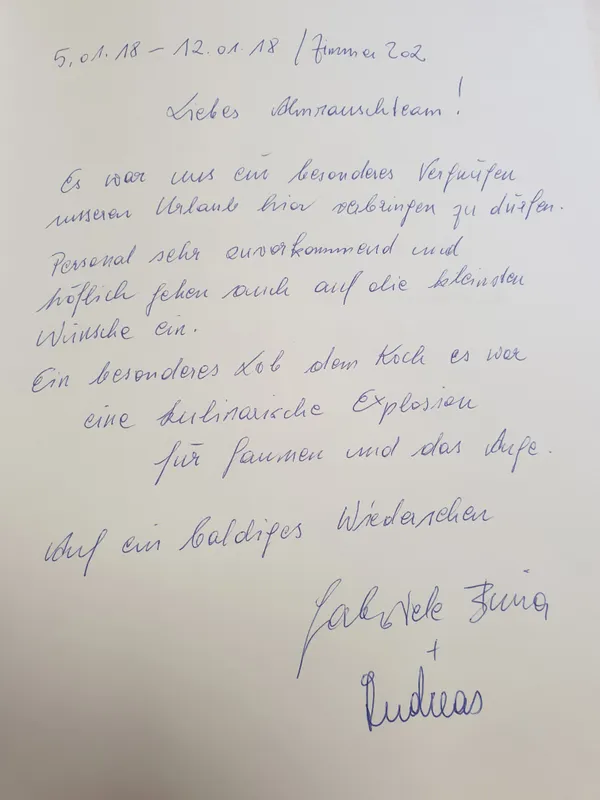 5.01.18 – 12.01.18 / Zimmer 202
Liebes Almrauschteam!
Es war uns ein besonderes Vergnügen
unseren Urlaub hier verbringen zu dürfen.
Personal sehr zuvorkommend und
höflich gehen auch auf die kleinsten
Wünsche ein.
Ein besonderes Lob dem Koch es war
eine kulinarische Explosion
für Gaumen und das Auge.
Auf ein baldiges Wiedersehen
Gabriele
+
Andreas